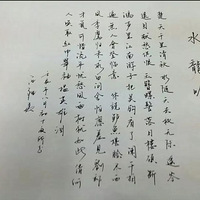 水龍吟
楚天千里清秋水隨天去秋無際遙岑
遠目獻愁供恨玉簪螺髻落日樓頭斷
鴻聲里江南游子把吳鉤看了欄干拍
遍無人會登臨意休說鱸魚堪膾盡西
風季鷹歸未求田問舍怕應羞見劉郎
才氣可惜流年憂愁風雨樹猶如此倩何
人喚取紅巾翠袖搵英雄淚